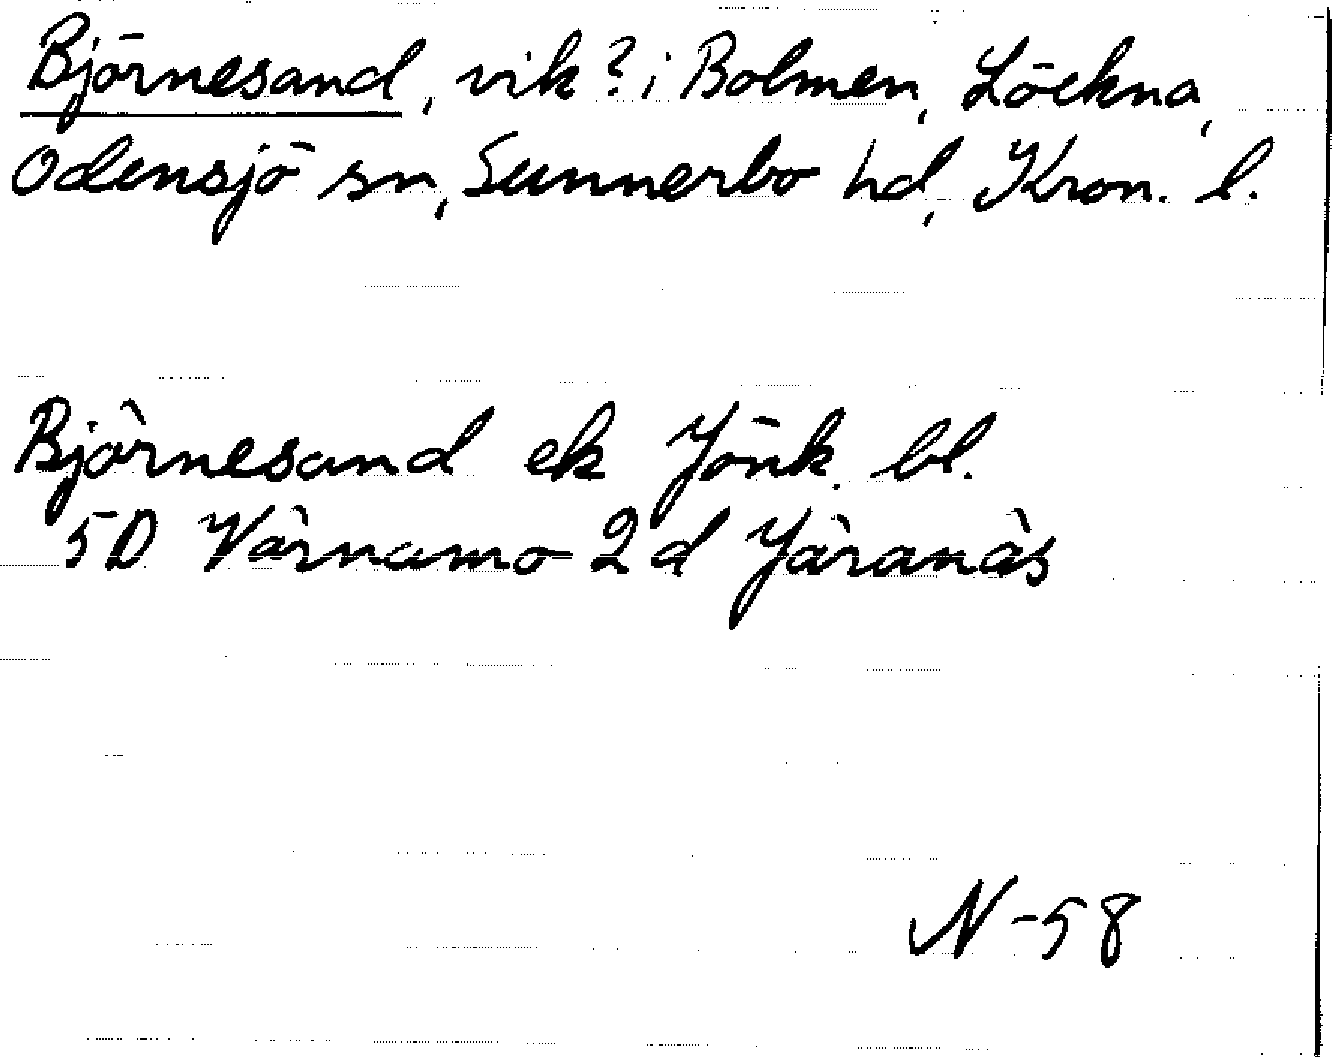 Björnesand, vik? i Bolmen, Löckna,
Odensjö sn, Sunnerbo hd, Kron. l.
Björnesand ek Jönk. bl.
5D Värnamo 2d Järanäs
N-58